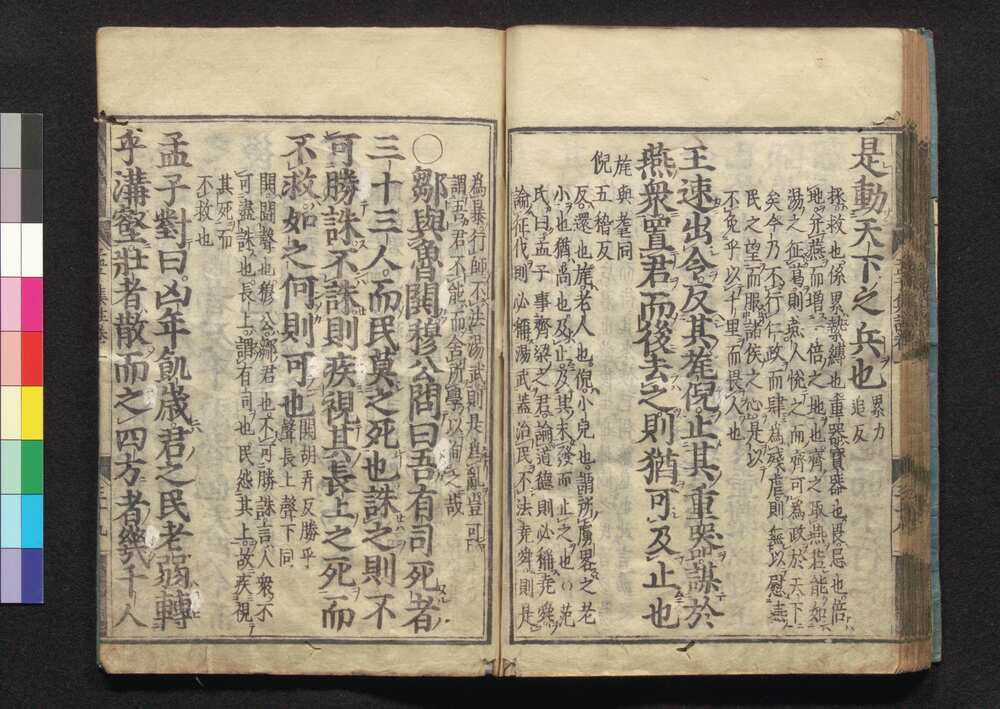 是動天下之兵也累力
追反
拯救也係累縶縛也重器寶器也畏忌也倍
地幷燕而增一倍之地也齊之取燕若能如
湯之征葛則燕人悅之而齊可爲政於天下
矣今乃不行仁政而肆爲殘虐則無以慰燕
民之望而服諸侯之心是以
不免乎以千里而畏人也
王速出令反其旄倪止其重器謀於
燕衆置君而後去之則猶可及止也
旄與耄同
倪五稽反
反還也旄老人也倪小兒也謂所虜畧之老
小也猶尚也及止及其未發而止之也○范
氏曰孟子事齊梁之君論道德則必稱堯舜
論征伐則必稱湯武蓋治民不法堯舜則是
爲暴行師不法湯武則是爲亂豈可
謂吾君不能而舍所學以徇之哉
○鄒與魯鬨穆公問曰吾有司死者
三十三人而民莫之死也誅之則不
可勝誅不誅則疾視其長上之死而
不救如之何則可也鬨胡弄反勝平
聲長上聲下同
鬨鬪聲也穆公鄒君也不可勝誅言人衆不
可盡誅也長上謂有司也民怨其上故疾視
其死而
不救也
孟子對曰凶年飢歲君之民老弱轉
乎溝壑壯者散而之四方者幾千人